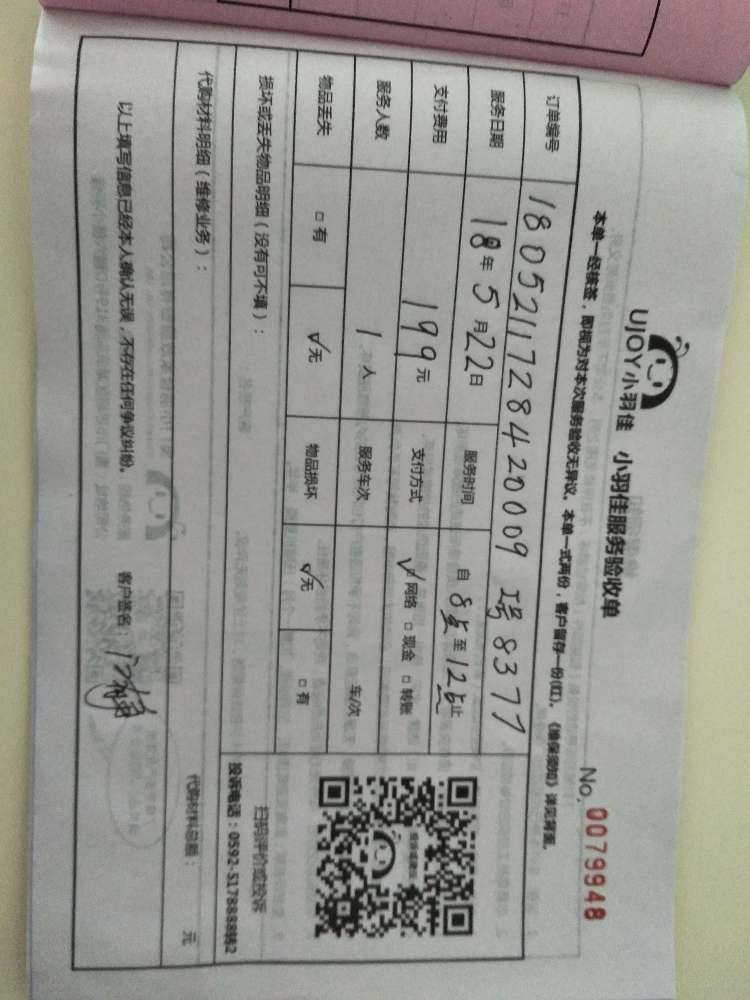 UJOY小羽佳 小羽佳服务验收单 No. 0079948
本单一经核签，即视为对本次服务验收无异议。本单一式两份，客户留存一份(红)。《维保须知》详见背面。
订单编号 18052117284420009 工号 8377
服务日期 18年5月22日 服务时间 自 8点 至 12点 止
支付费用 199元 支付方式 ☑网络 □现金 □转账
服务人数 1人 服务车次 车/次
物品丢失 □有 ☑无 物品损坏 ☑无 □有
损坏或丢失物品明细（没有可不填）：
扫码评价或投诉
投诉电话：0592-5178888转2
代购材料明细（维修业务）： 代购材料总额： 元
以上填写信息已经本人确认无误，不存在任何争议纠纷。 客户签名：